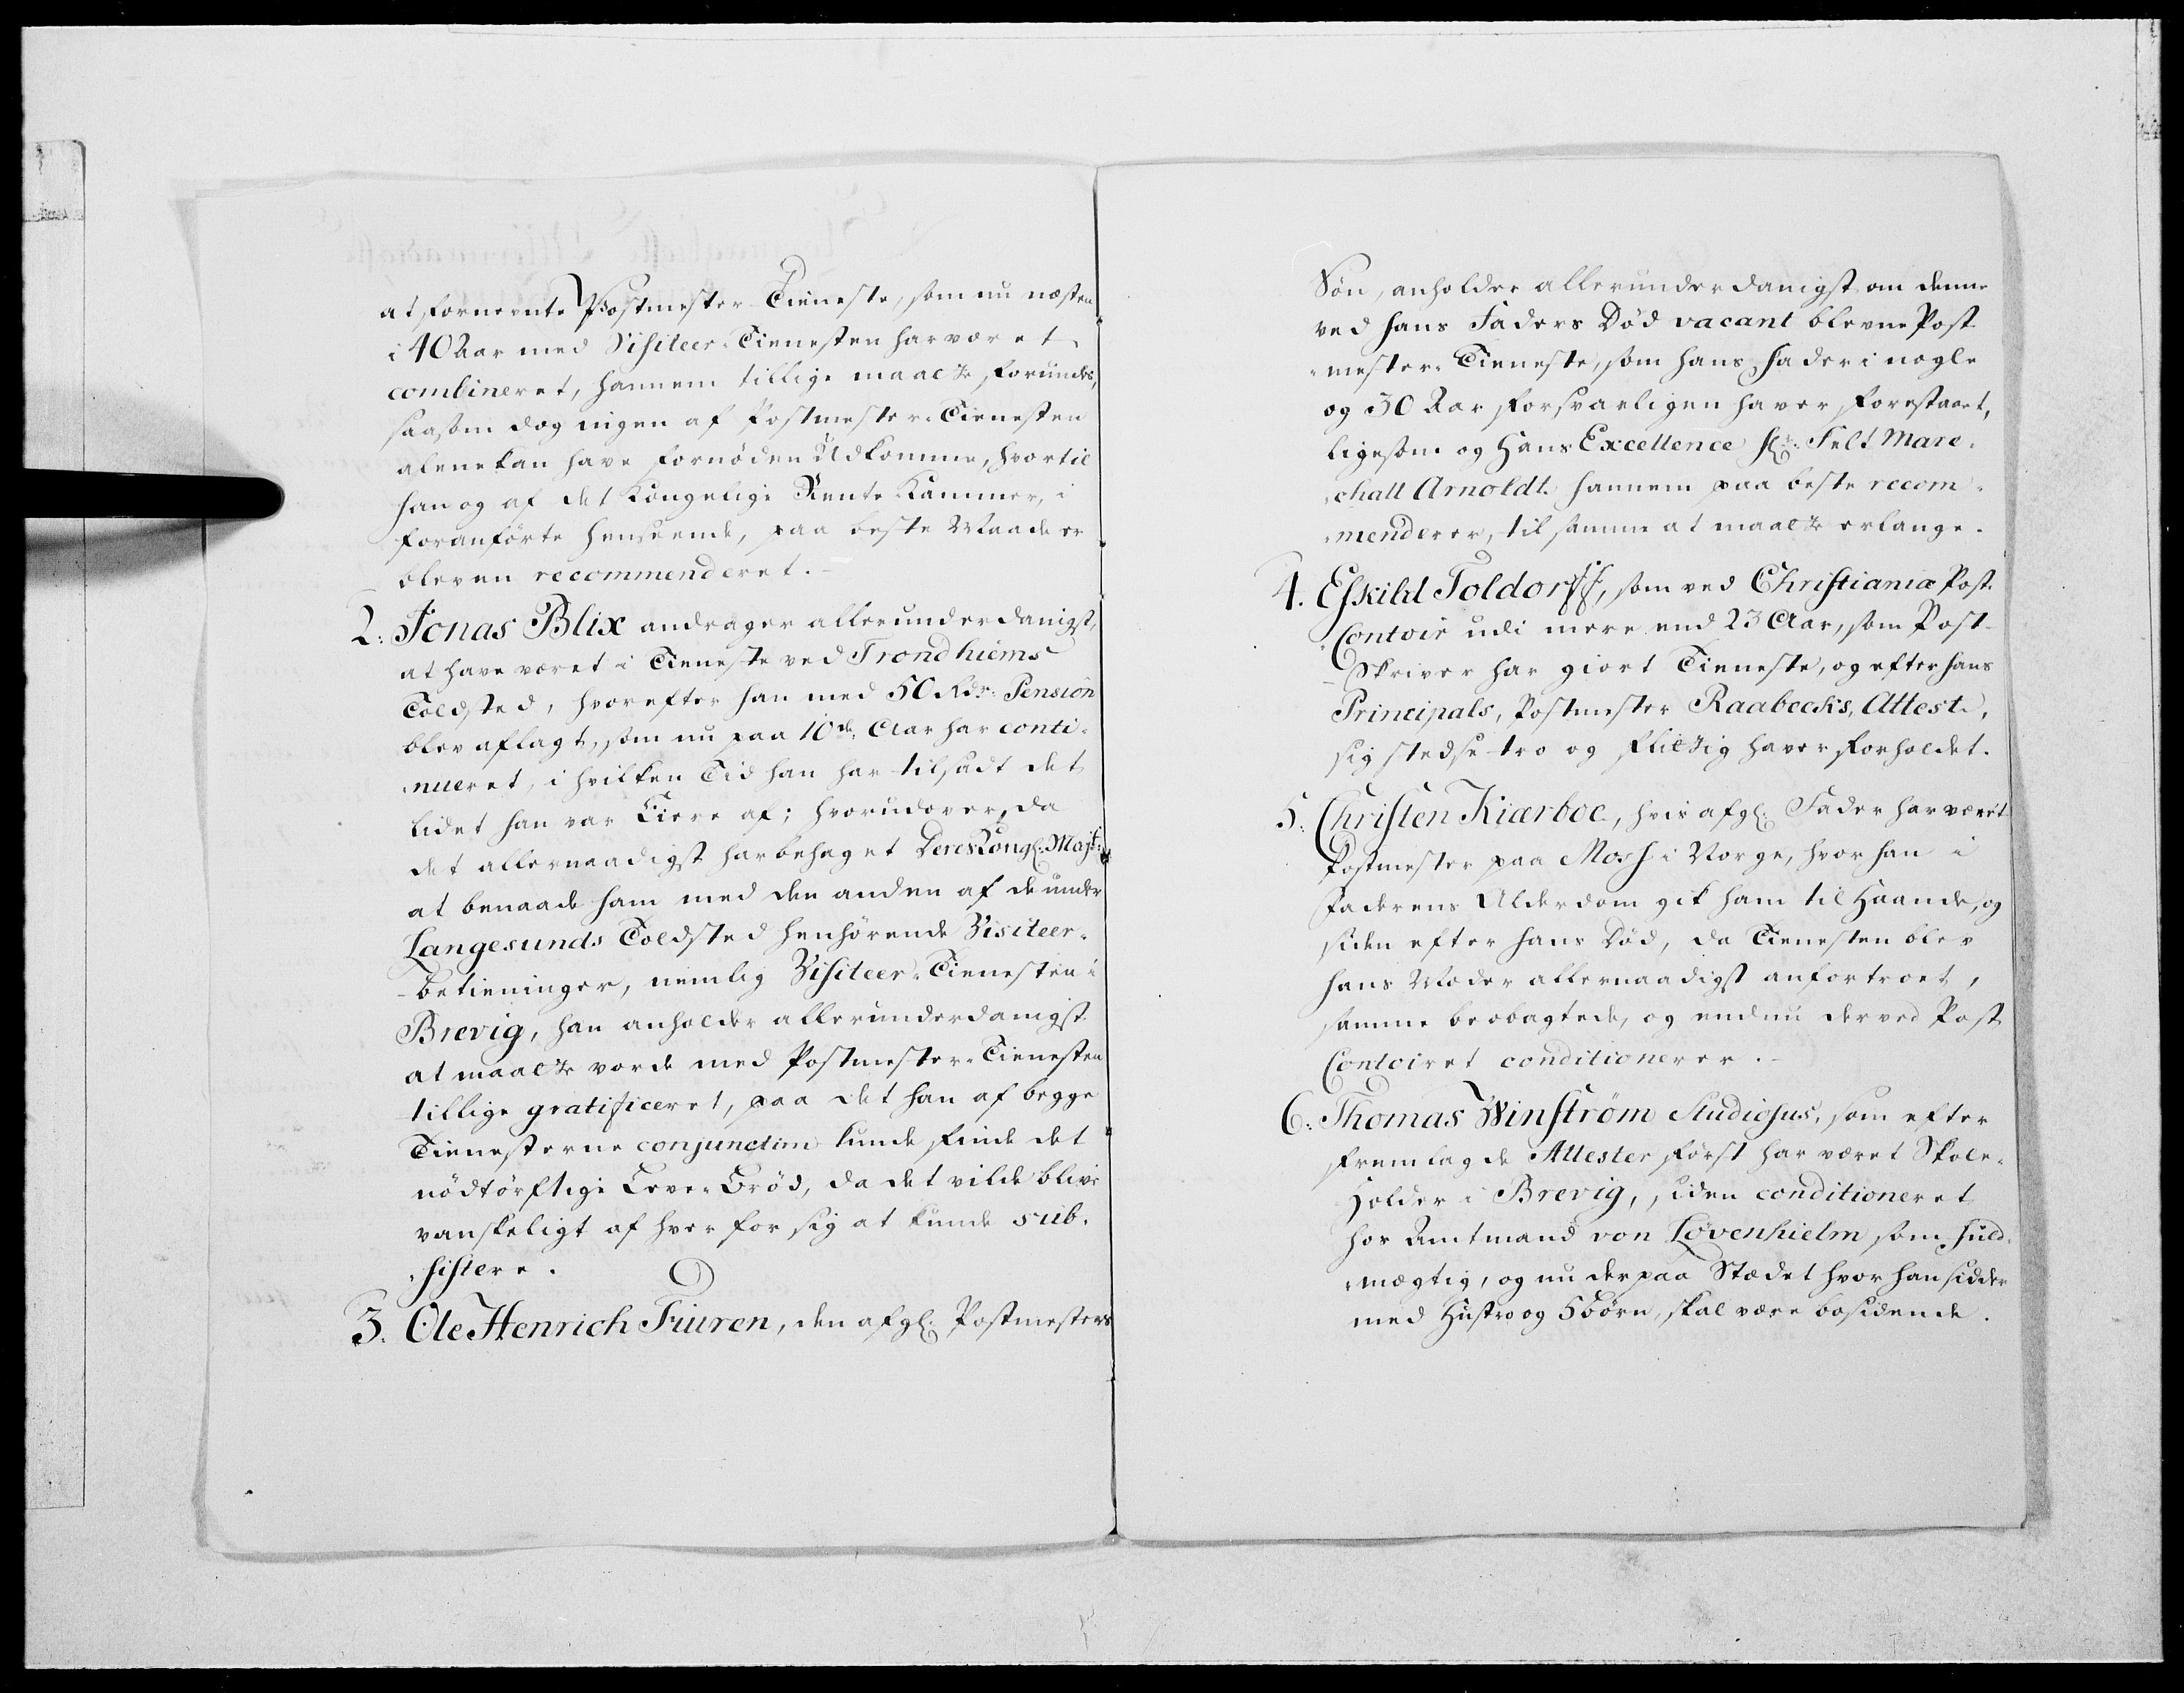 at fornevnte Postmester-Tieneste, som nu næsten
i 40 Aar med Visiteer-Tienesten har været
combineret, hannem tillige maatte forundes,
saasom dog ingen af Postmester-Tienesten
alene kan have fornøden Udkomme, hvortil
han og af det Kongelige Rente Kammer, i
foranførte henseende, paa beste Maade er
bleven recommenderet.-
2. Jonas Blix andrager allerunderdanigst,
at have været i Tieneste ved Trondhiems
Toldsted, hvorefter han med 50 Rdr: Pension
blev aflagt, som nu paa 10de Aar har conti-
nueret, i hvilken Tid han har tilsadt det
lidet han var Eiere af; hvorudover, da
det allernaadigst har behaget Deres Kongl: Majt:
at benaade ham med den anden af de under
Langesunds Toldsted henhørende Visiteer-
-betieninger, nemlig Visiteer-Tienesten i
Brevig, han anholder allerunderdanigst
at maatte vorde med Postmester-Tienesten
tillige gratificeret, paa det han af begge
Tienesterne conjunctim kunde finde det
nödtörftige Leve-Bröd, da det vilde blive
vanskeligt af hver for sig at kunde sub-
sistere.
3. Ole Henrich Fiuren, den afgl: Postmesters
Søn, anholder allerunderdanigst om denne
ved hans Faders Død vacant blevne Post-
mester-Tieneste, som hans Fader i nogle
og 30 Aar forsvarligen haver forestaaet,
ligesom og Hans Excellence Hr: Felt Mare-
chall Arnoldt hannem paa beste recom-
menderer, til samme at maatte erlange.
4. Eskild Toldorff, som ved Christianiæ Post-
Contoir udi mere end 23 Aar, som Post-
-Skriver har giort Tieneste, og efter hans
Principals, Postmester Raabecks, Attest,
sig stedse tro og flittig haver forholdet.
5. Christen Kiærboe, hvis afgl: Fader har været
Postmester paa Moss i Norge, hvor han i
Faderens Alderdom gik ham til Haande, og
siden efter hans Død, da Tienesten blev
hans Moder allernaadigst anfortroet,
samme beobagtede, og endnu der ved Post
Contoiret conditionerer.-
6. Thomas Winström Studiosus, som efter
fremlagde Attester først har været Skole-
Holder i Brevig, siden conditioneret
hos Amtmand von Lövenhielm som Fuld-
mægtig, og nu der paa Stædet hvor han sidder
med Hustro og 5 Børn, skal være bosidende.